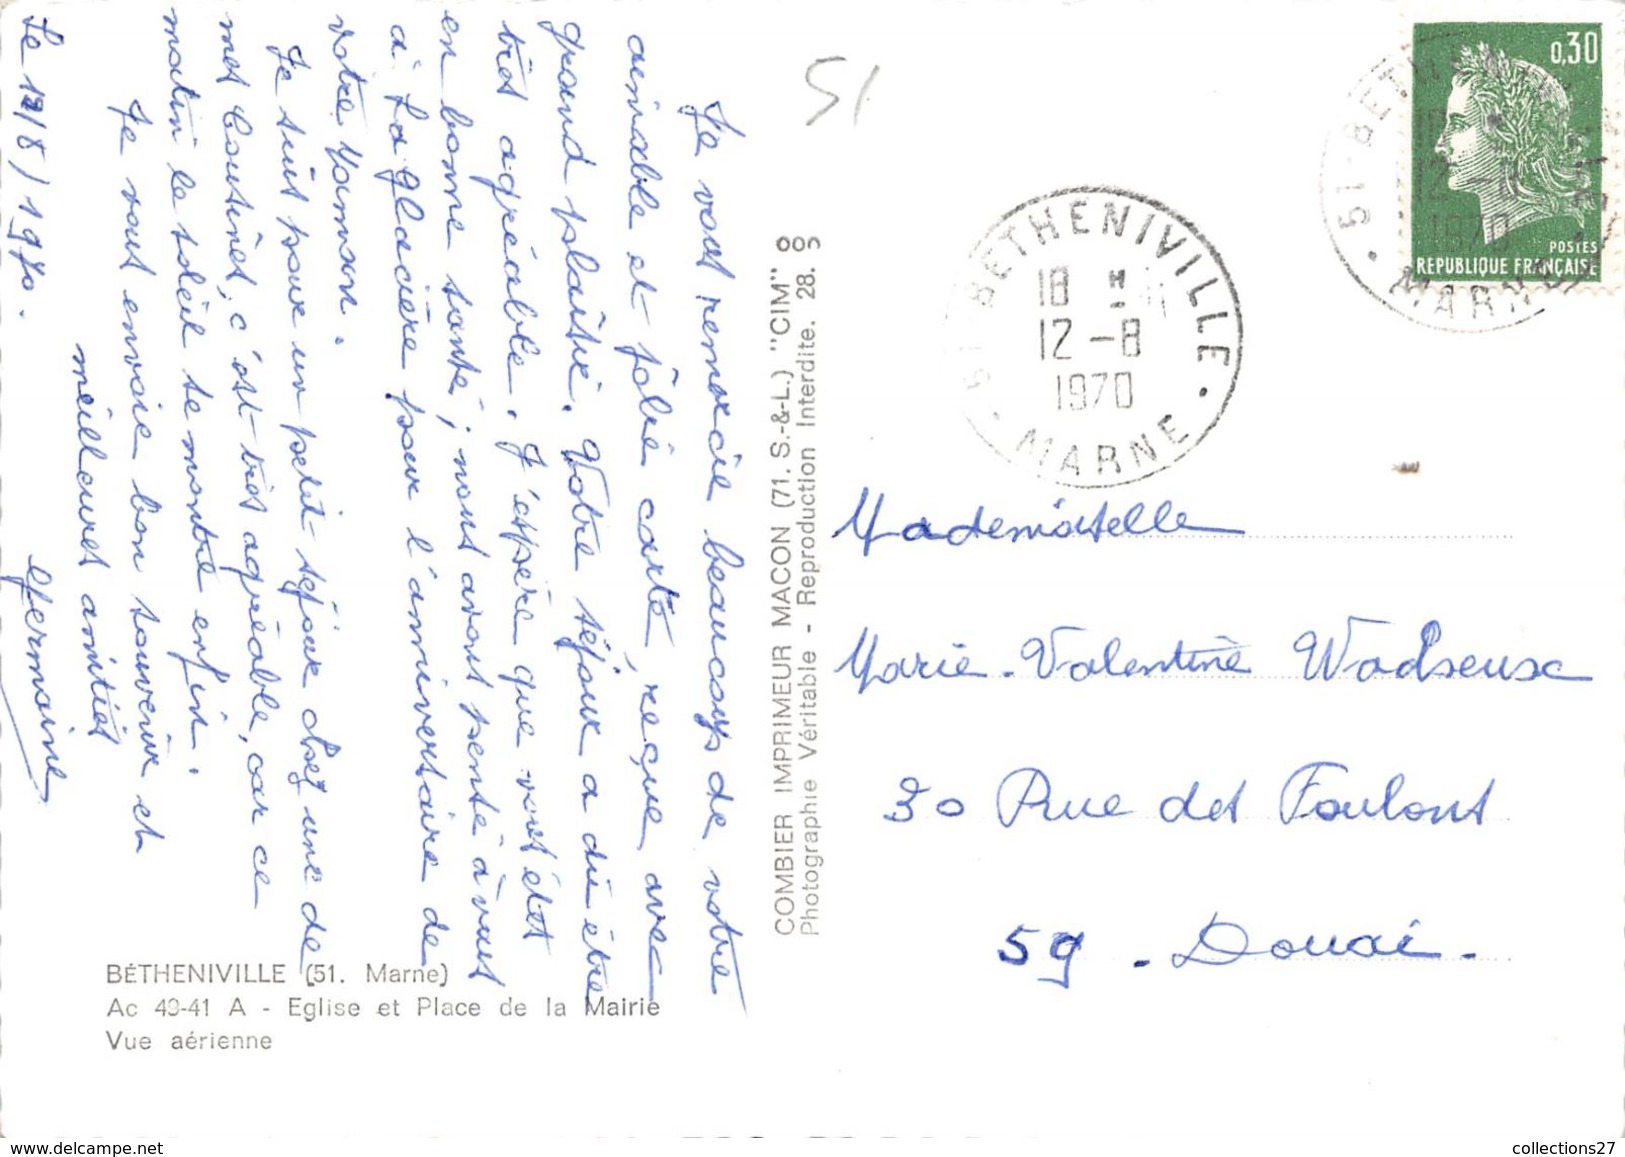 Je vous remercie beaucoup de votre
aimable et jolie carte, reçue avec
grand plaisir. Votre séjour a dû être
très agréable. J'espère que vous êtes
en bonne santé; nous avons pensé à vous
à La glacière pour l'anniversaire de
votre Maman.
Je suis pour un petit séjour chez une de
mes Cousines, c'est très agréable, car ce
matin le soleil se montre enfin.
Je vous envoie bon souvenir et
meilleures amitiés
Germaine
Le 12/8/1970.
BÉTHENIVILLE (51. Marne)
Ac 49-41 A - Eglise et Place de la Mairie
Vue aérienne
COMBIER IMPRIMEUR MACON (71. S.-&-L.) "CIM"
Photographie Véritable - Reproduction Interdite. 28.
51
51 BETHENIVILLE
18 H
12-8
1970
MARNE
0,30
POSTES
REPUBLIQUE FRANÇAISE
51 BETHENIVILLE
12-8
1970
MARNE
Mademoiselle
Marie-Valentine Wadseux
30 Rue des Foulons
59 - Douai.
collections27